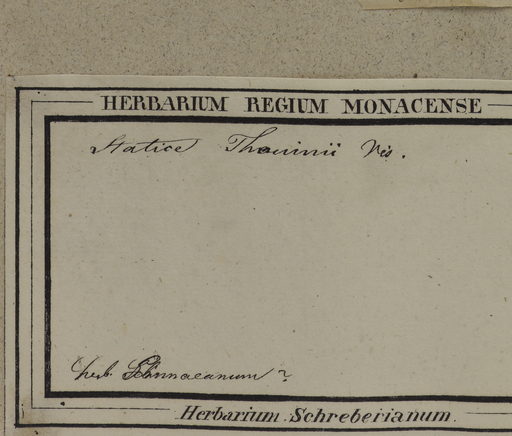 HERBARIUM REGIUM MONACENSE
Statice Thouinii Vis.
herb. Linnaeanum ?
Herbarium Schreberianum.